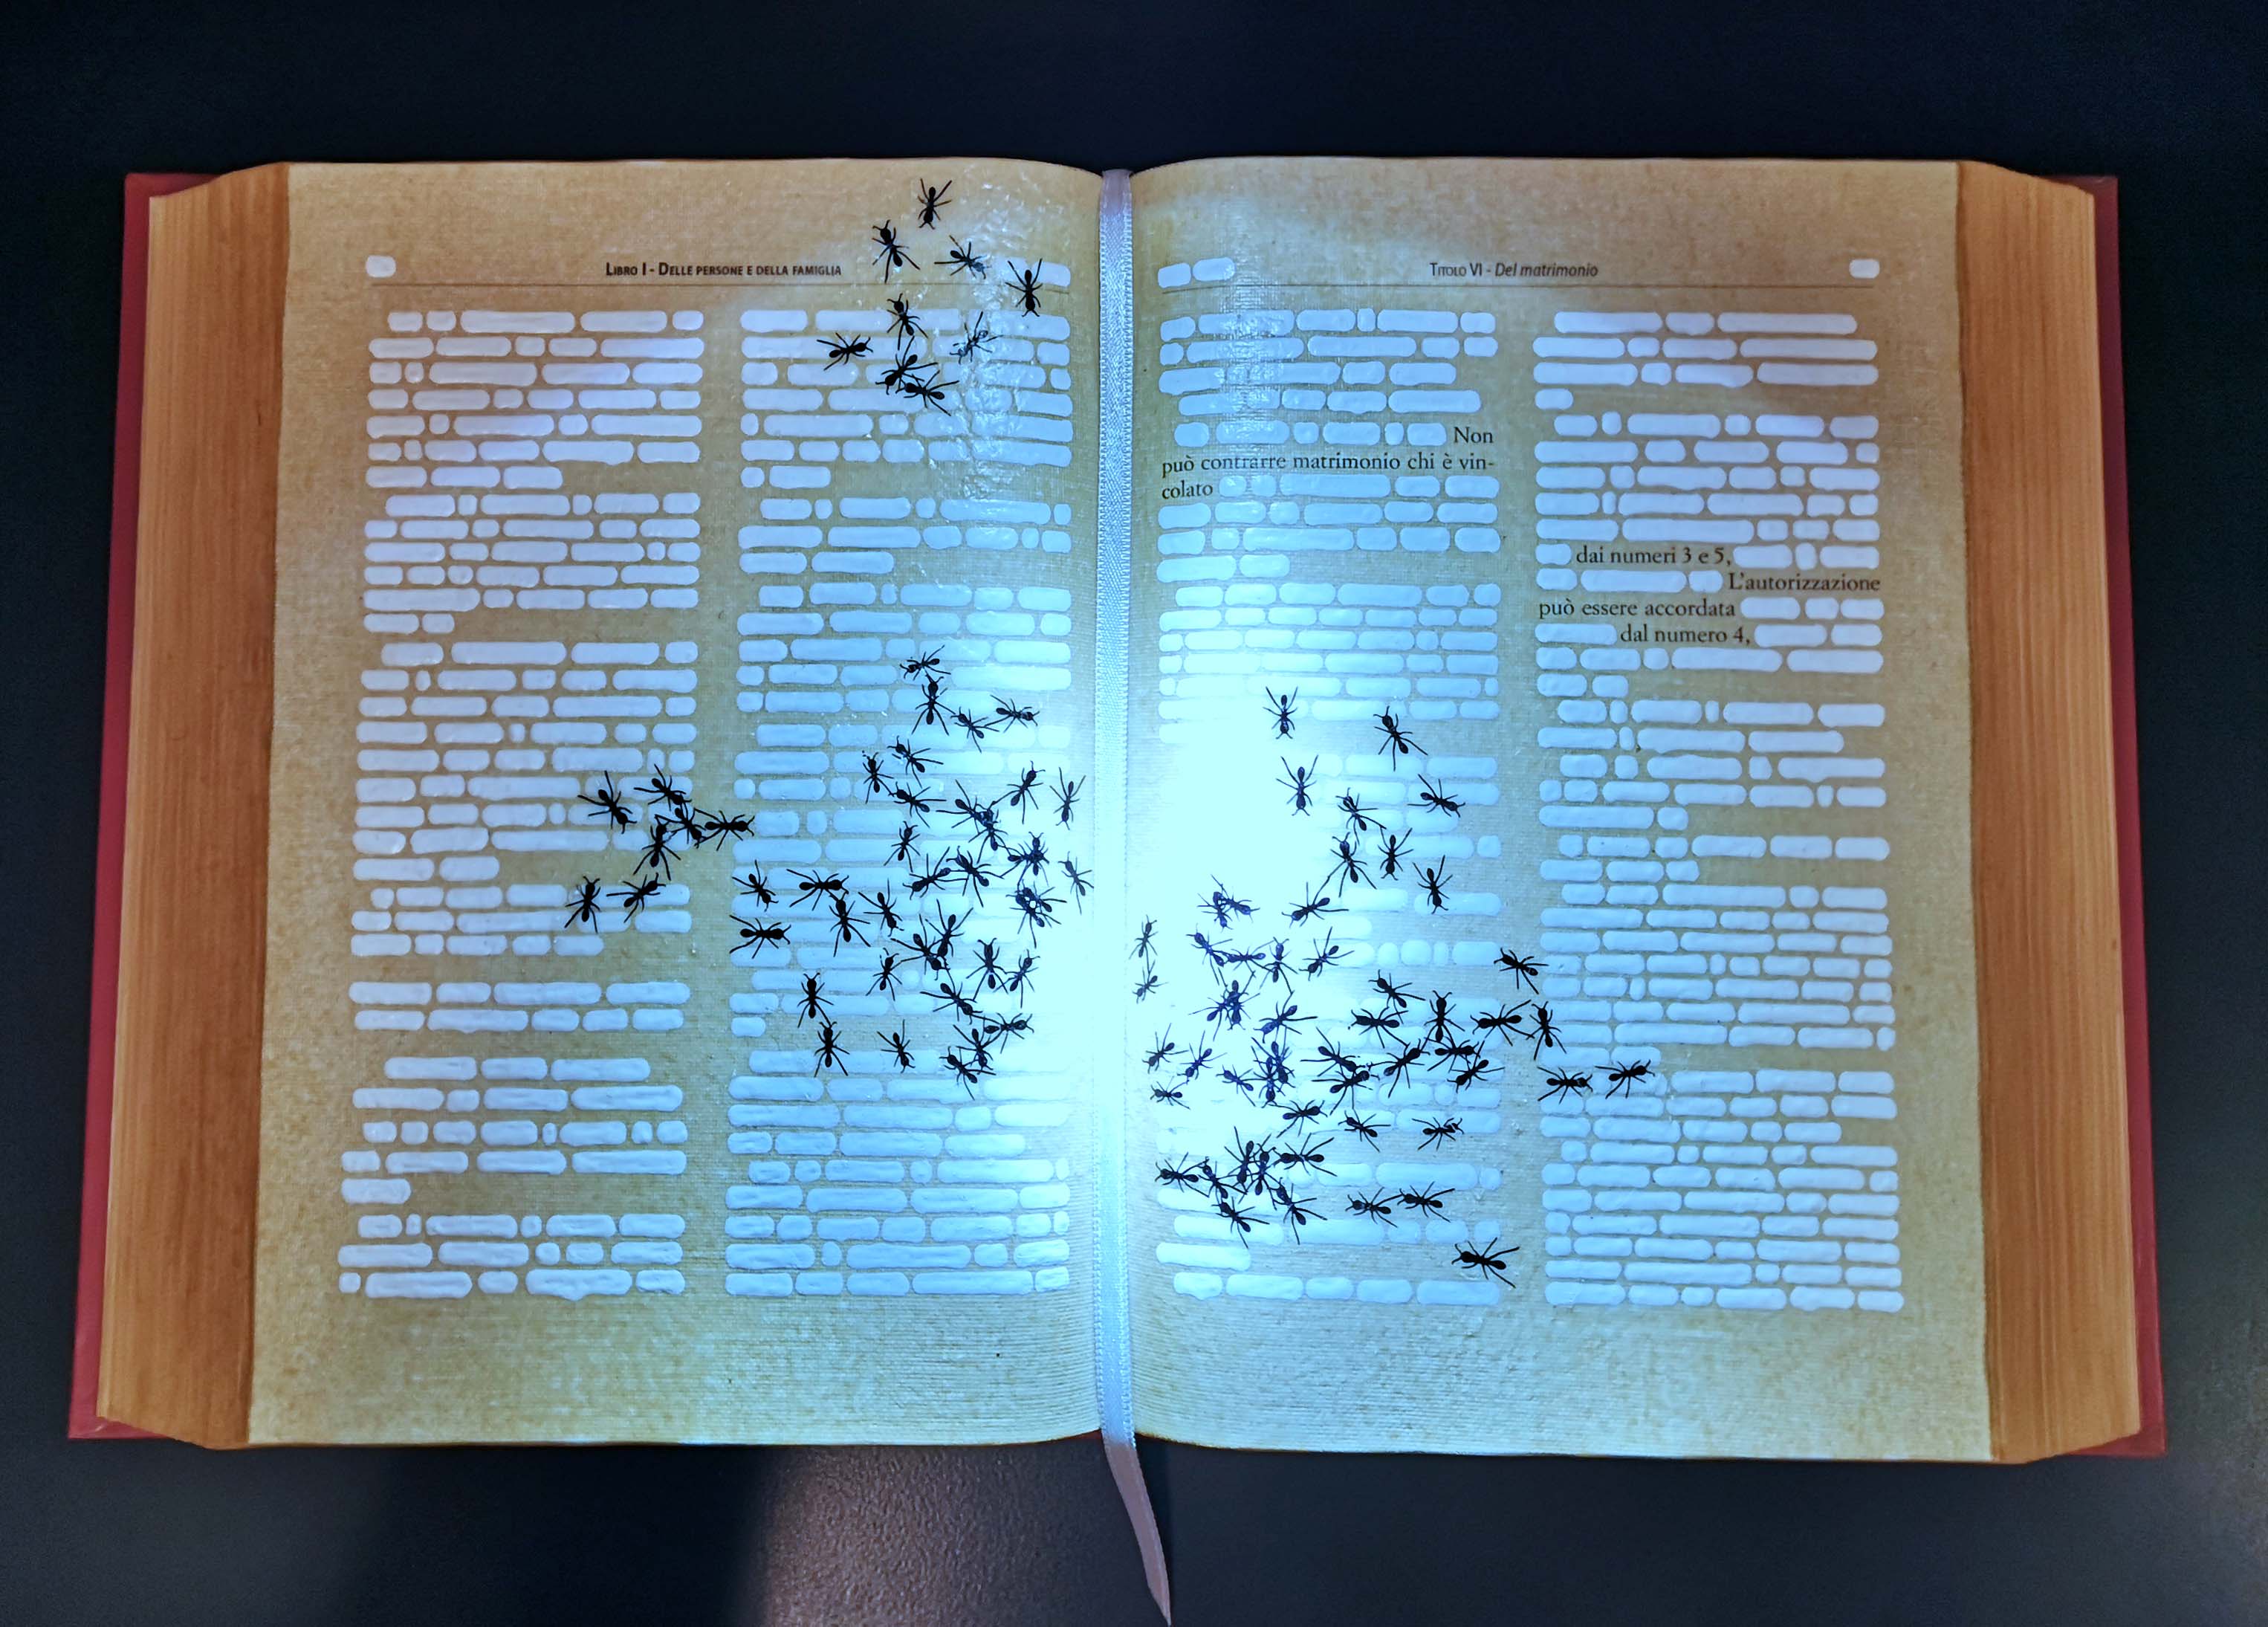 Libro I - Delle persone e della famiglia
Titolo VI - Del matrimonio
Non
può contrarre matrimonio chi è vin-
colato
dai numeri 3 e 5,
L'autorizzazione
può essere accordata
dal numero 4,